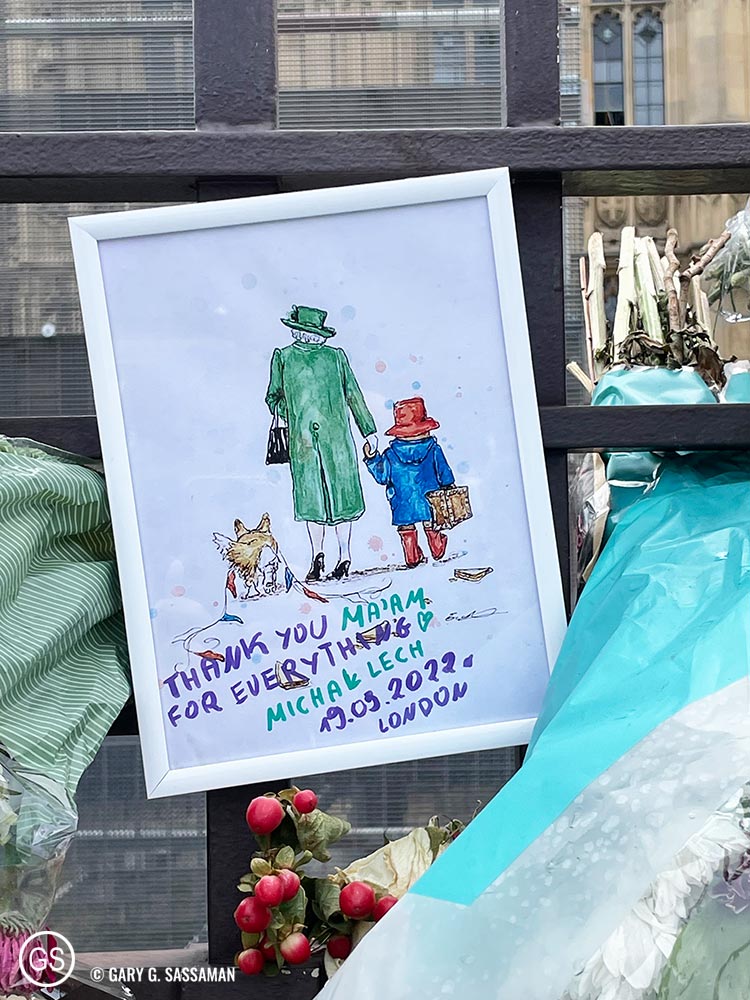 THANK YOU MA'AM
FOR EVERYTHING
MICHAŁ LECH
19.09.2022.
LONDON
GS
© GARY G. SASSAMAN